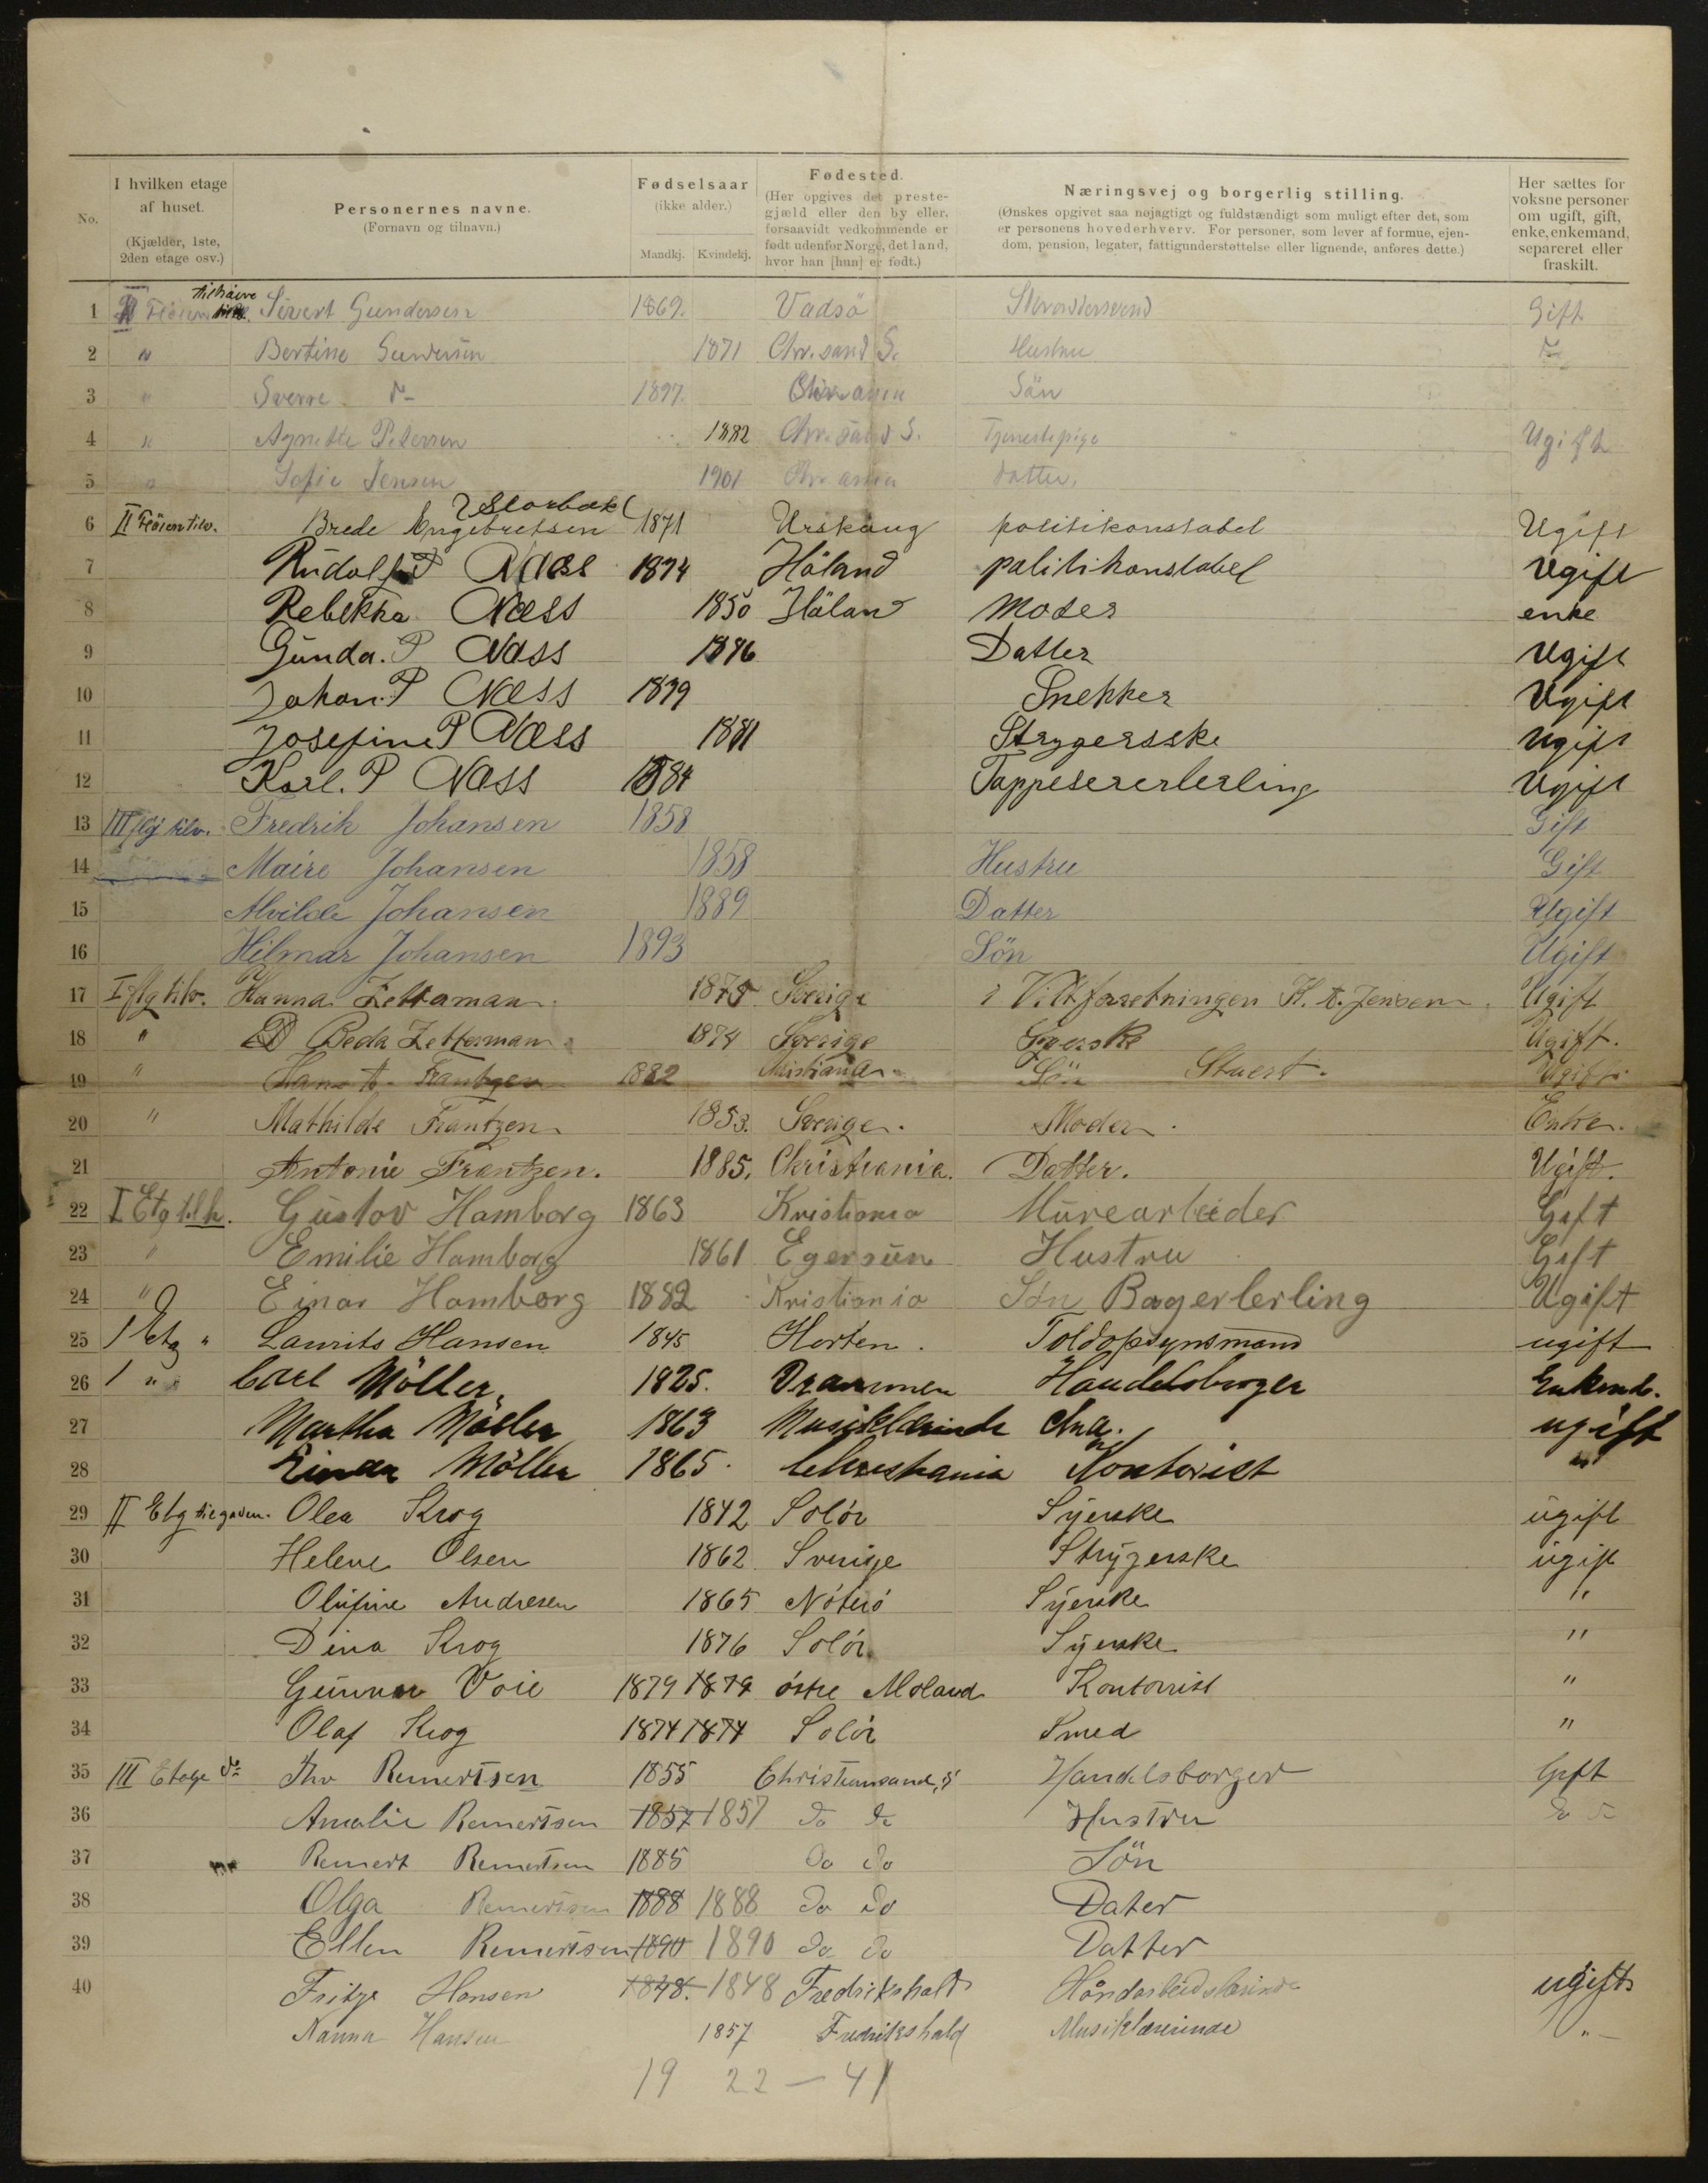 No.
I hvilken etage af huset. (Kjælder, 1ste, 2den etage osv.)
Personernes navne. (Fornavn og tilnavn.)
Fødselsaar (ikke alder.) Mandkj. Kvindekj.
Fødested. (Her opgives det prestegjæld eller den by eller, forsaavidt vedkommende er født udenfor Norge, det land, hvor han [hun] er født.)
Næringsvej og borgerlig stilling. (Ønskes opgivet saa nøjagtigt og fuldstændigt som muligt efter det, som er personens hovederhverv. For personer, som lever af formue, ejendom, pension, legater, fattigunderstøttelse eller lignende, anføres dette.)
Her sættes for voksne personer om ugift, gift, enke, enkemand, separeret eller fraskilt.
1 Sivert Gundersen 1869. Vadsö Gift
2 " Bertine Gundersen 1871 Chr. sand S. Hustru do
3 " Sverre do 1897. Chr. ania Sön
4 " Agnethe Petersen 1882 Chr. sand S. Tjenestepige Ugift
5 " Sofie Jensen 1901 Chr ania datter.
6 II Flöien tilv. Brede Engebretsen Storbæk 1871 Urskoug politikonstabel Ugift
7 Rudolf P Næss 1874 Höland politikonstabel Ugift
8 Rebekka Næss 1850 Hölan Moder enke
9 Gunda. P Næss 1876 Datter Ugift
10 Johan. P Næss 1879 Snekker Ugift
11 Josefine P Næss 1881 Strygersske Ugift
12 Karl. P Næss 1884 Tappesererlerling Ugift
13 III flg tilv. Fredrik Johansen 1858 Gift
14 Maire Johansen 1858 Hustru Gift
15 Alvilde Johansen 1889 Datter Ugift
16 Hilmar Johansen 1893 Sön Ugift
17 I flg tilv. Hanna Zettaman 1875 Sverige i Viktforretningen H. A. Jensen. Ugift
18 " Beda Zetterman 1874 Sverige Syerske Ugift.
19 " Hans A. Frantzen 1882 Kristiania Sön Stuert. Ugift
20 " Mathilde Frantzen 1853. Sverige. Moder. Enke.
21 Antonie Frantzen. 1885. Christiania. Datter. Ugift.
22 I Etg t.h. Gustov Hamborg 1863 Kristiania Murearbeider Gift
23 " Emilie Hamborg 1861 Egersun Hustru Gift
24 " Einar Hamborg 1882 Kristiania Sön Bagerlerling Ugift
25 1 Etg " Laurits Hansen 1845 Horten. Toldopsynsmand ugift
26 1 " " Carl Möller. 1825. Drammen Handelsborger Enkend.
27 Martha Möller 1863 Musiklærinde Chra. ugift
28 Einar Möller 1865. Christiania Kontorist "
29 II Etg tilgaden. Olea Krog 1842 Solör Syerske ugift
30 Helene Olsen 1862 Sverige Strygerske ugift
31 Olufine Andresen 1865 Nöterö Syerske "
32 Dina Krog 1876 Solör Syerske "
33 Gunnar Voie 1879 1879 östre Moland Kontorist "
34 Olaf Krog 1874 1874 Solör Smed "
35 III Etage do Thv Reinertsen 1855 Christiansand, S Handelsborger Gift
36 Amalie Reinertsen 1857 1857 do do Hustru do do
37 Reinert Reinertsen 1885 do do Sön
38 Olga Reinertsen 1888 1888 do do Dater
39 Ellen Reinertsen 1890 1890 do do Datter
40 Fritze Hansen 1848. 1848 Fredrikshald Håndarbeidslærinde ugift
Nanna Hansen 1857 Fredrikshald Musiklærerinde "
19 22 — 41